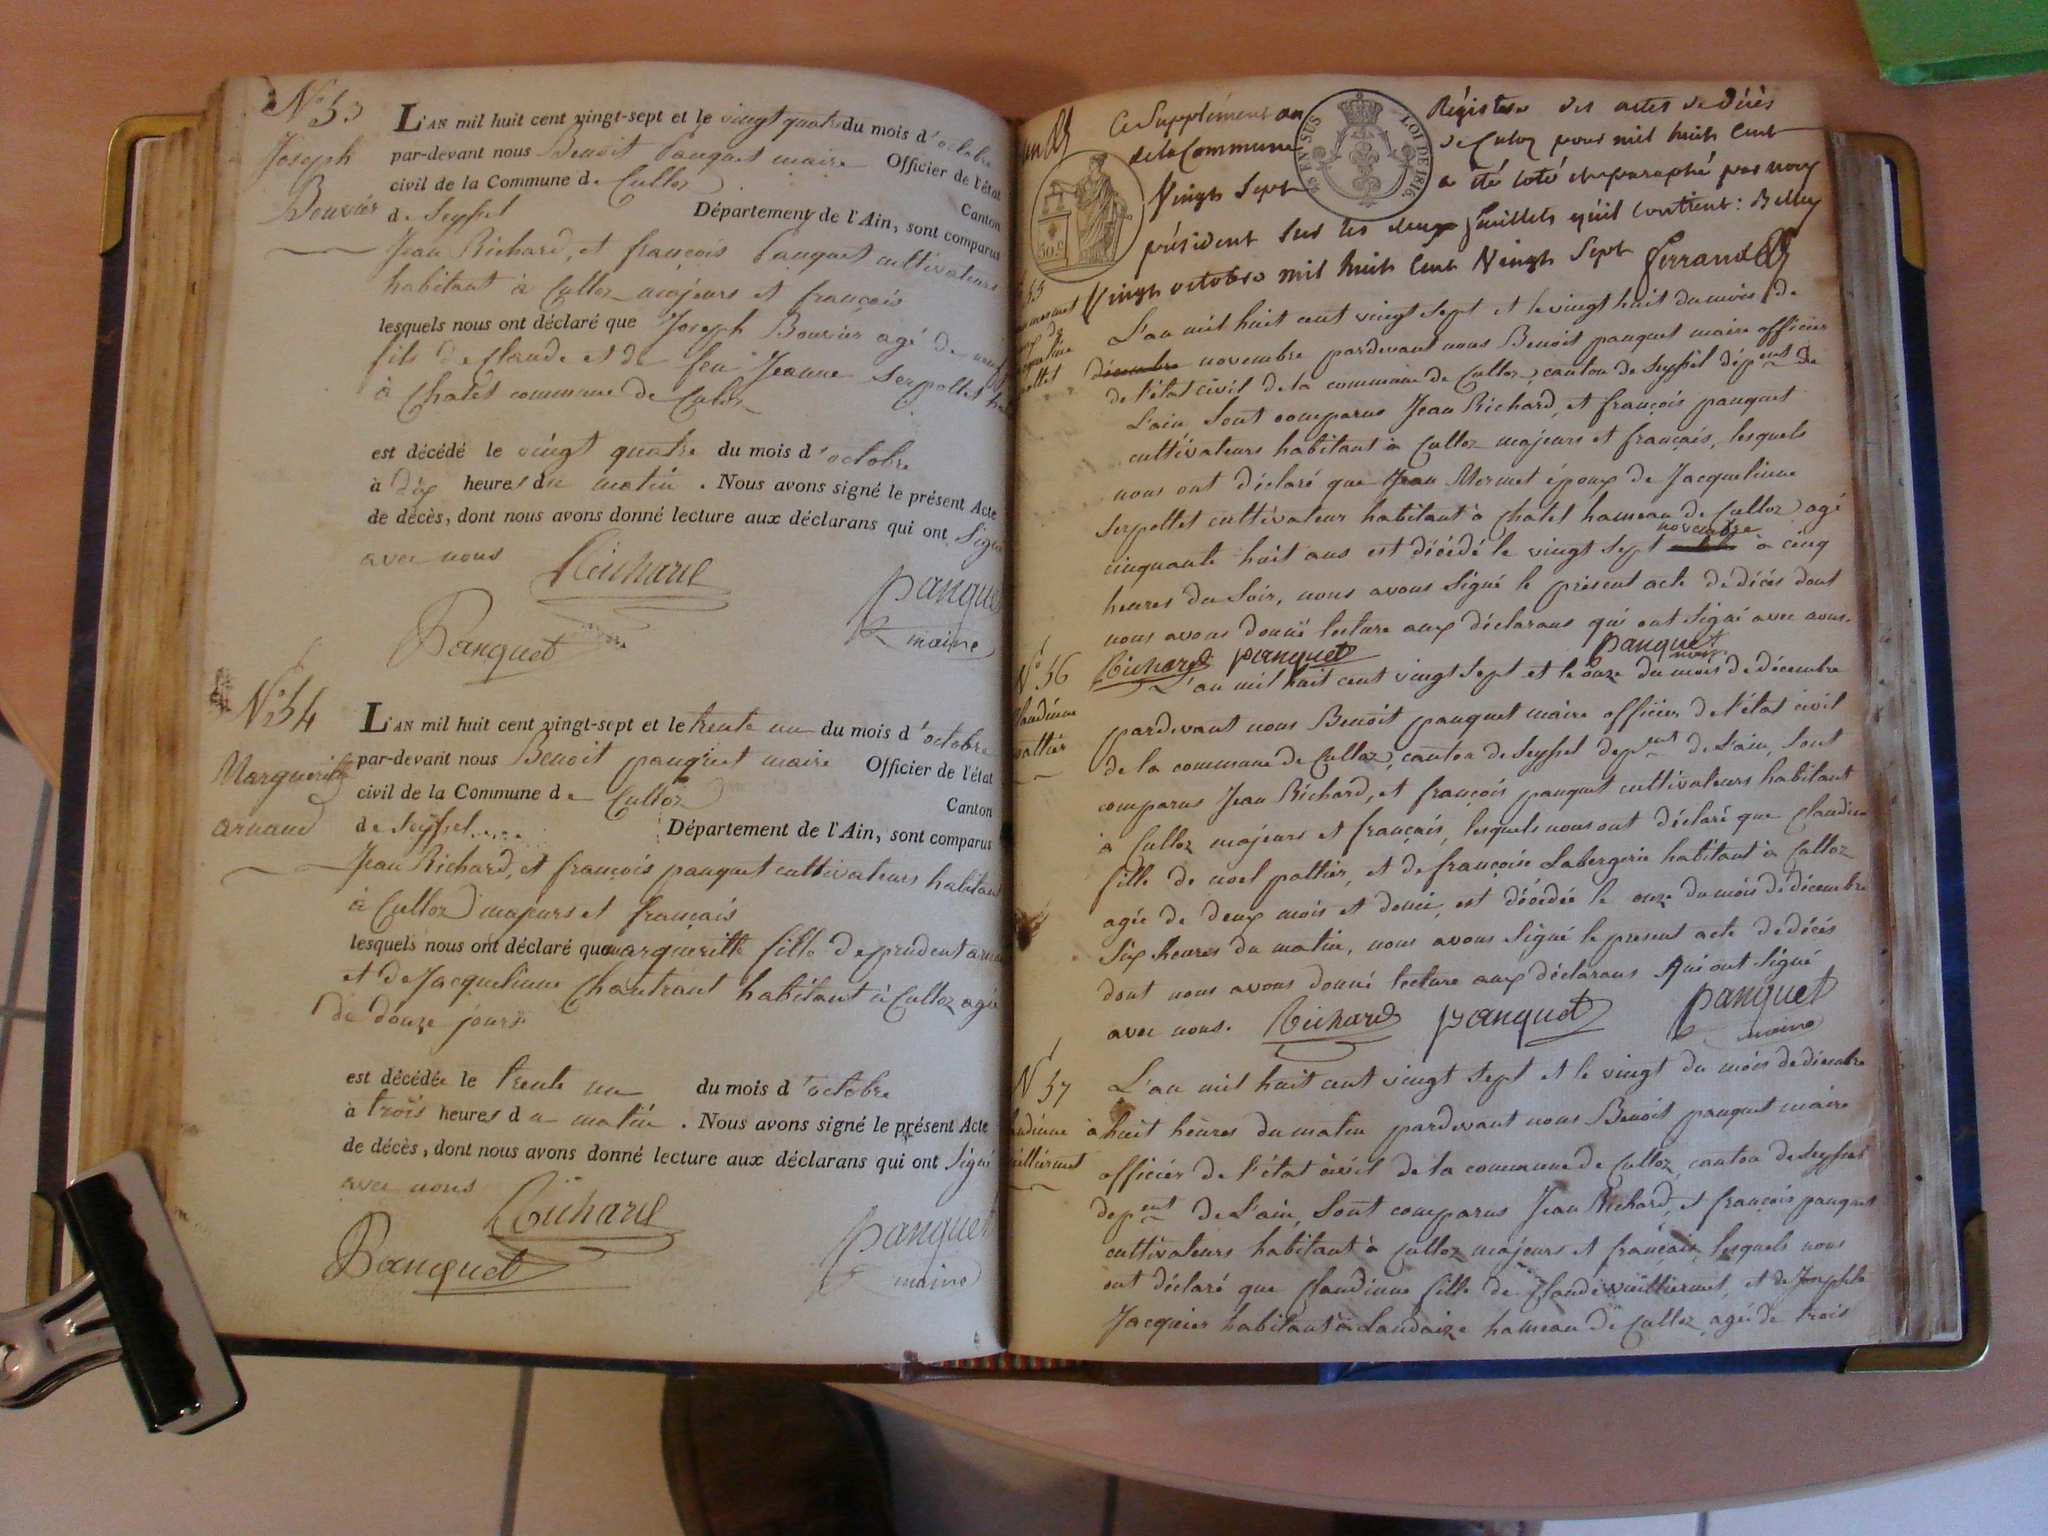 N° 53
Joseph
Bouvier
L'AN mil huit cent vingt-sept et le vingt quatre du mois d'octobre
par-devant nous Benoit panquet maire Officier de l'état
civil de la Commune de Culloz Canton
de Seyssel Département de l'Ain, sont comparus
Jean Richard, et françois panquet cultivateurs
habitant à Culloz majeurs et français
lesquels nous ont déclaré que Joseph Bouvier agé de neuf
fils de Claude et de feu Jeanne Serpollet
à Chatel commune de Culoz
est décédé le vingt quatre du mois d'octobre
à dix heures du matin. Nous avons signé le présent Acte
de décès, dont nous avons donné lecture aux déclarans qui ont Signé
avec nous Richard panquet
Panquet maire
N° 54
Marguerite
arnaud
L'AN mil huit cent vingt-sept et le trente un du mois d'octobre
par-devant nous Benoit panquet maire Officier de l'état
civil de la Commune de Culloz Canton
de Seyssel Département de l'Ain, sont comparus
Jean Richard, et françois panquet cultivateurs habitant
à Culloz majeurs et français
lesquels nous ont déclaré que margueritte fille de prudent
et de Jacquelinne Chantrant habitant à Culloz agée
de douze jours
est décédée le trente un du mois d'octobre
à trois heures du matin. Nous avons signé le présent Acte
de décès, dont nous avons donné lecture aux déclarans qui ont Signé
avec nous Richard panquet
Panquet maire
Ce Supplément au Régistre des actes de décès
de la Commune de Culoz pour mil huit Cent
Vingt Sept a été coté et paraphé par nous
président sur les deux feuillets qu'il Contient: Belley
Vingt octobre mil huit Cent Vingt Sept ferrand
EN SUS LOI DE 1816
50 c
55
L'an mil huit cent vingt sept et le vingt huit du mois de
décembre novembre pardevant nous Benoit panquet maire officier
de l'état civil de la commune de Culloz, canton de Seyssel dépent de
L'ain Sont comparus Jean Richard, et françois panquet
cultivateurs habitant à Culloz majeurs et français, lesquels
nous ont déclaré que Jean Mermet époux de Jacquelinne
Serpollet cultivateur habitant à Chatel hameau de Culloz agé
cinquante huit ans est décédé le vingt Sept novembre à cinq
heures du Soir, nous avons Signé le présent acte de décés dont
nous avons donné lecture aux déclarans qui ont signé avec nous.
Richard panquet panquet maire
N° 56
Claudinne
pattier
L'an mil huit cent vingt sept et le onze du mois de décembre
pardevant nous Benoit panquet maire officier de l'état civil
de la commune de Culloz, canton de Seyssel depent de L'ain, Sont
comparus Jean Richard, et françois panquet cultivateurs habitant
à Culloz majeurs et français, lesquels nous ont déclaré que Claudinne
fille de noel pattier, et de françoise Labergerie habitant à Culloz
agée de deux mois et demie, est décédée le onze du mois de décembre
Six heures du matin, nous avons Signé le present acte de décés
dont nous avons donné lecture aux déclarans qui ont Signé
avec nous. Richard panquet panquet
maire
N 57
L'an mil huit cent vingt Sept et le vingt du mois de décembre
à huit heures du matin pardevant nous Benoit panquet maire
officier de l'état civil de la commune de Culloz, canton de Seyssel
depent de L'ain, Sont comparus Jean Richard, et françois panquet
cultivateurs habitant à Culloz majeurs et français, lesquels nous
ont déclaré que Claudinne fille de Claude vuilliermet, et de Josephte
Jacquier habitant à Landaize hameau de Culloz, agée de trois